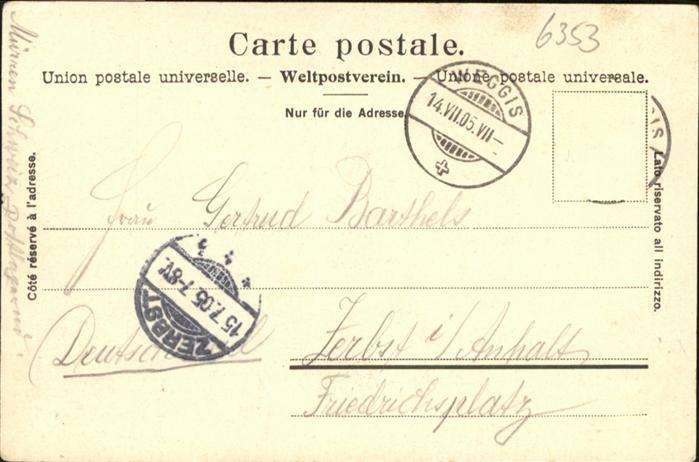 6353
Carte postale.
Union postale universelle. — Weltpostverein. — Unione postale universale.
Nur für die Adresse.
WEGGIS
14.VII.05.VII—
GIS
Côté réservé à l'adresse.
Lato riservato all indirizzo.
Mürren Schweiz Postlagernd.
Frau Gertrud Barthels
ZERBST
15.7.05.7-8V.
Deutschland
Zerbst i/Anhalt
Friedrichsplatz